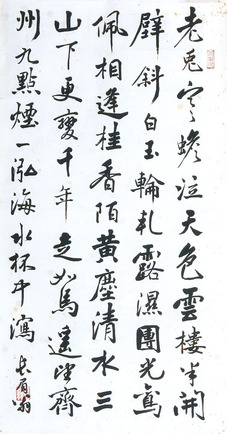 老兔寒蟾泣天色雲樓半開
壁斜白玉輪軋露濕團光鸞
佩相逢桂香陌黃塵清水三
山下更變千年走如馬遙望齊
州九點煙一泓海水杯中瀉